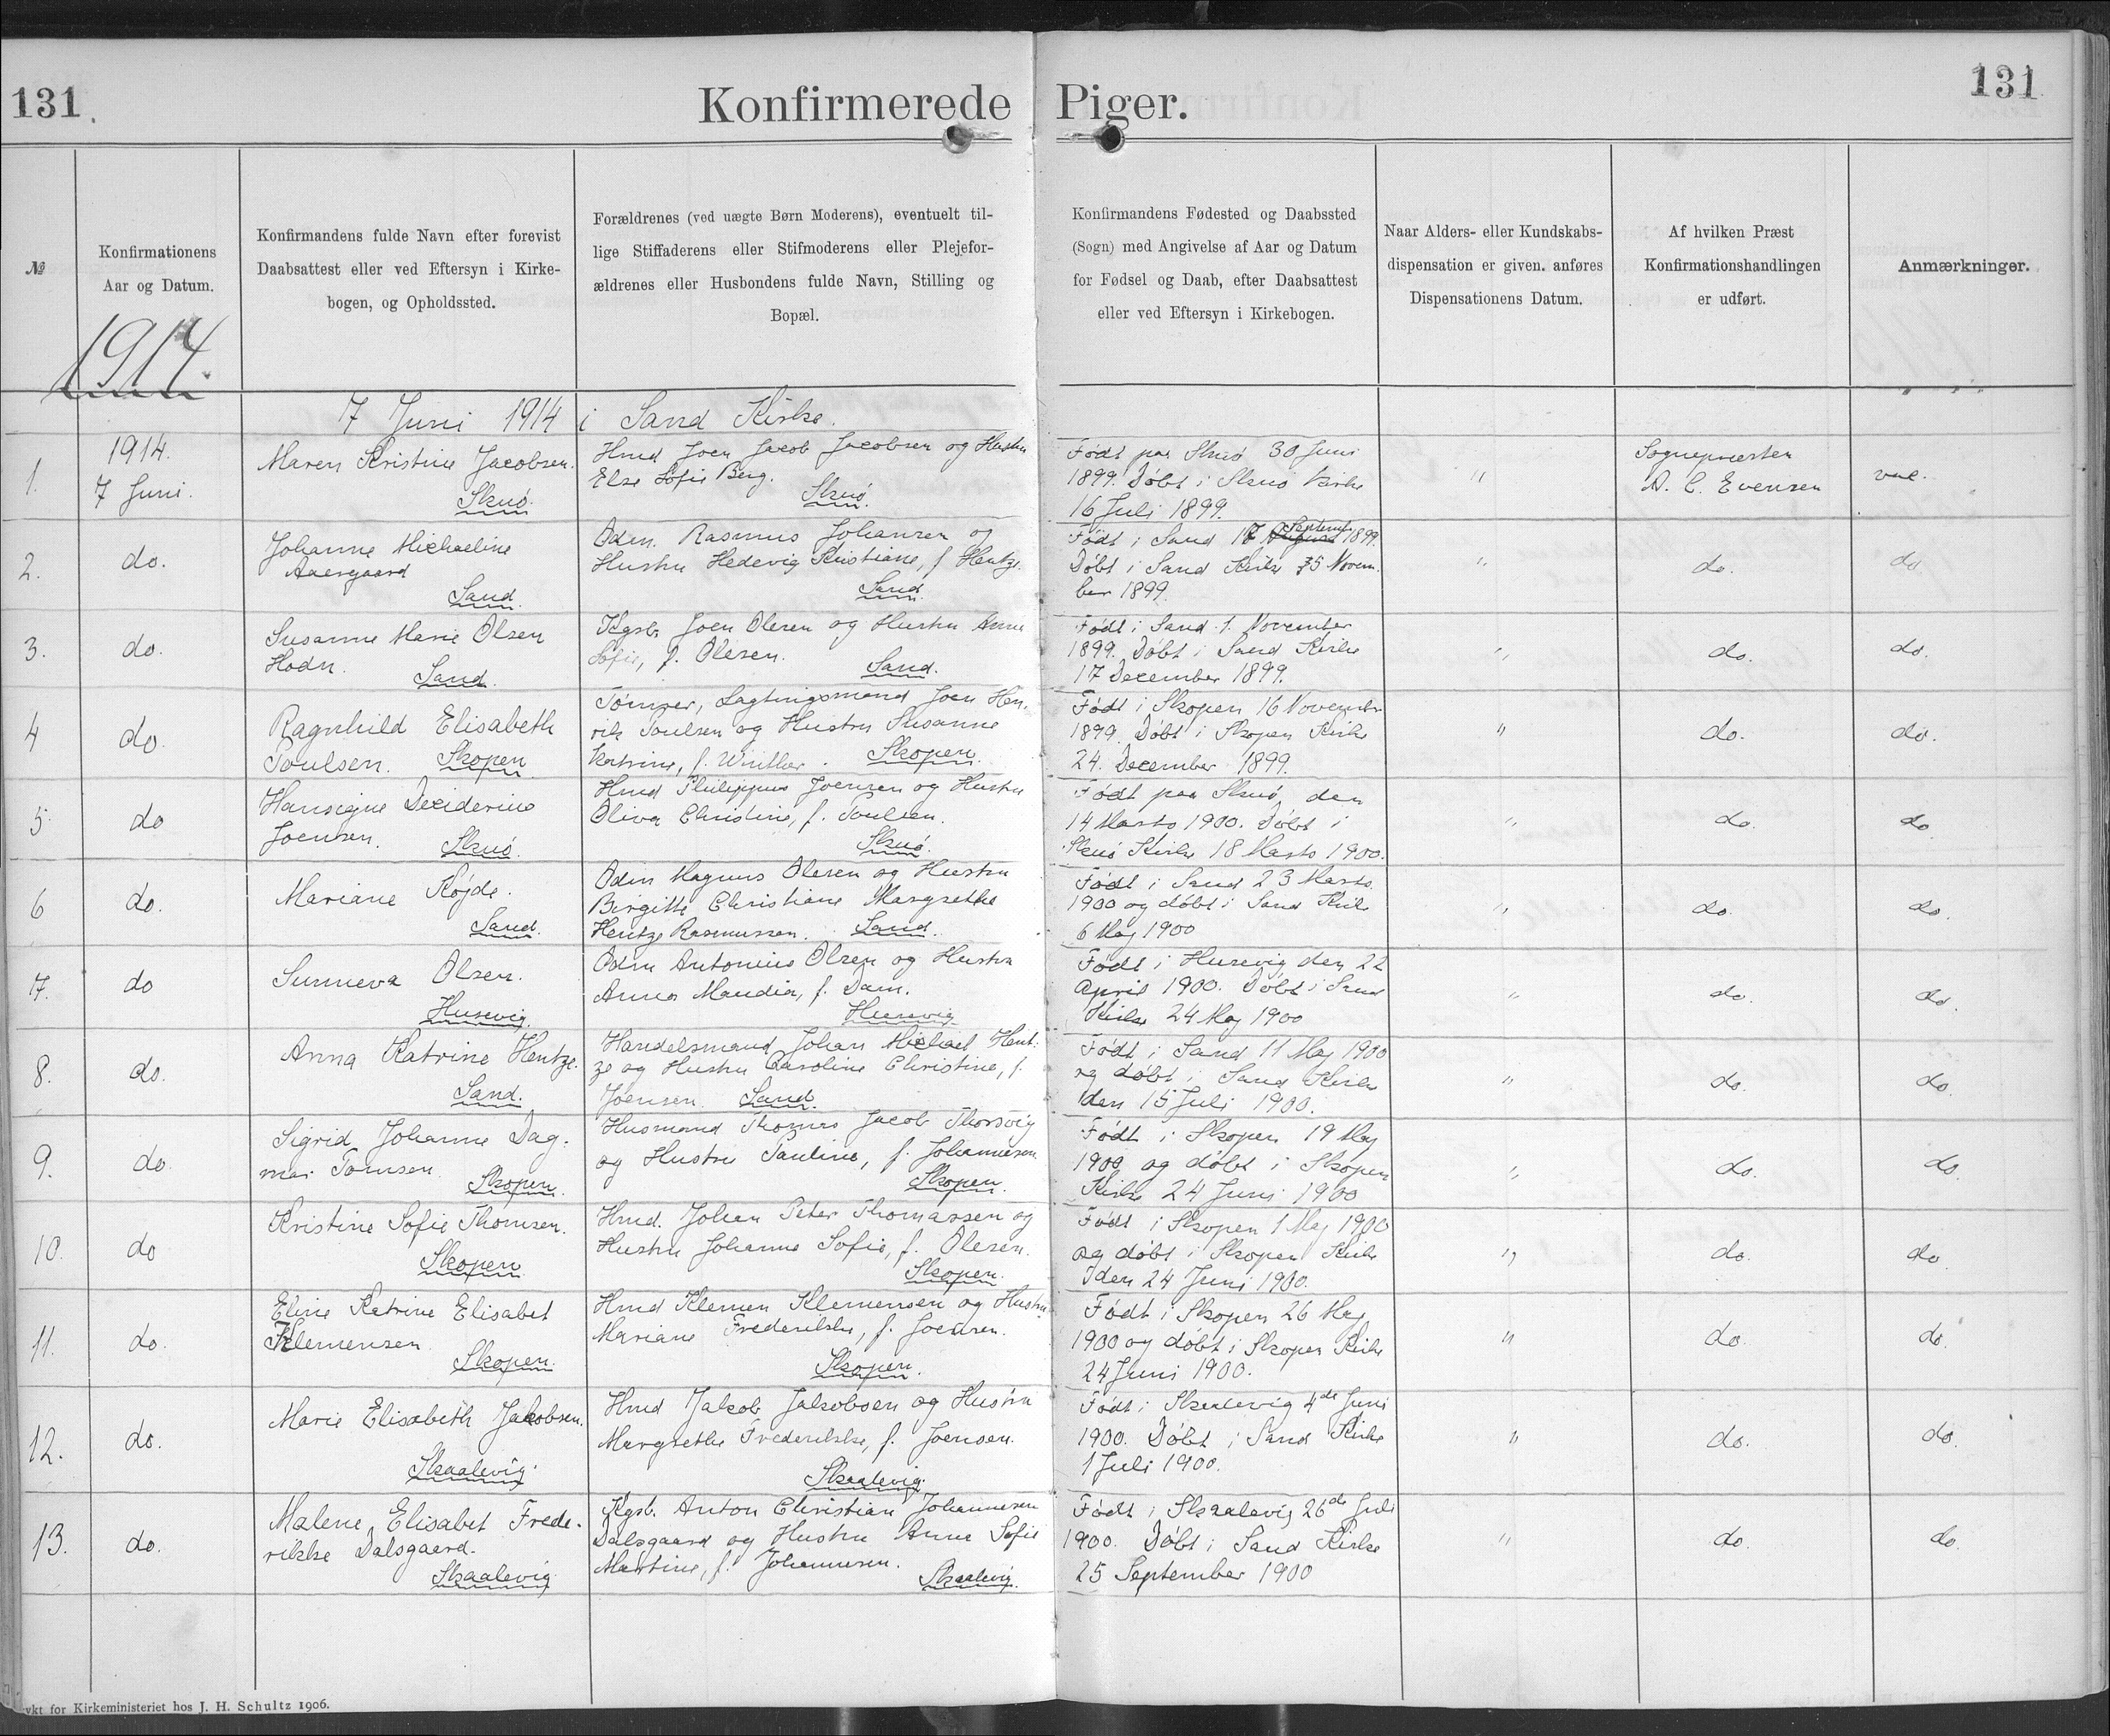 131
Konfirmerede Piger.
131
№
Konfirmationens
Aar og Datum.
Konfirmandens fulde Navn efter forevist
Daabsattest eller ved Eftersyn i Kirke-
bogen, og Opholdssted.
Forældrenes (ved uægte Børn Moderens), eventuelt til-
lige Stiffaderens eller Stifmoderens eller Plejefor-
ældrenes eller Husbondens fulde Navn, Stilling og
Bopæl.
Konfirmandens Fødested og Daabssted
(Sogn) med Angivelse af Aar og Datum
for Fødsel og Daab, efter Daabsattest
eller ved Eftersyn i Kirkebogen.
Naar Alders- eller Kundskabs-
dispensation er given, anføres
Dispensationens Datum.
Af hvilken Præst
Konfirmationshandlingen
er udført.
Anmærkninger.
1914.
7 Juni 1914 i Sand Kirke.
1.
1914.
7 Juni.
Maren Kristine Jacobsen.
Skuø.
Hmd Joen Jacob Jacobsen og Hustru
Else Sofie Berg.
Skuø.
Født paa Skuø 30 Juni
1899. Døbt i Skuø Kirke
16 Juli 1899.
"
Sognepræsten
A. C. Evensen
vac.
2.
do.
Johanne Michaeline
Aaersgaard
Sand.
Odm. Rasmus Johansen og
Hustru Hedevig Kristiane, f. Hentze.
Sand.
Født i Sand 17 August September 1899.
Døbt i Sand Kirke 5 Novem-
ber 1899.
"
do.
do
3.
do.
Susanne Marie Olsen
Hodn.
Sand.
Kgsb. Joen Olesen og Hustru Anne
Sofie, f. Olesen.
Sand.
Født i Sand 1. November
1899. Døbt i Sand Kirke
17 December 1899.
"
do.
do.
4
do.
Ragnhild Elisabeth
Poulsen. Skopen
Tømrer, Lagtingsmand Joen Hen-
rik Poulsen og Hustru Susanne
Katrine, f. Winther. Skopen.
Født i Skopen 16 November
1899. Døbt i Skopen Kirke
24. December 1899.
"
do.
do.
5
do
Hansigne Deciderine
Joensen. Skuø.
Hmd Philippus Joensen og Hustru
Oliva Christine, f. Poulsen.
Skuø.
Født paa Skuø den
14 Marts 1900. Døbt i
Skuø Kirke 18 Marts 1900.
"
do.
do
6
do.
Mariane Køjde.
Sand.
Odm Magnus Olesen og Hustru
Birgitte Christiane Margrethe
Hentze Rasmussen. Sand.
Født i Sand 23 Marts
1900 og døbt i Sand Kirke
6 Maj 1900
"
do
do.
7.
do
Sunneva Olsen.
Husevig.
Odm Antonius Olsen og Hustru
Anna Maudia, f. Dam.
Husevig.
Født i Husevig den 22
April 1900. Døbt i Sand
Kirke 24 Maj 1900
"
do.
do.
8.
do.
Anna Katrine Hentze.
Sand.
Handelsmand Johan Michael Hent-
ze og Hustru Caroline Christine, f.
Joensen. Sand.
Født i Sand 11 Maj 1900
og døbt i Sand Kirke
den 15 Juli 1900.
"
do.
do.
9.
do
Sigrid Johanne Dag-
mar Tomsen
Skopen.
Husmand Thomas Jacob Thorsvig
og Hustru Pauline, f. Johannesen
Skopen.
Født i Skopen 19 Maj
1900 og døbt i Skopen
Kirke 24 Juni 1900
"
do.
do.
10.
do
Kristine Sofie Thomsen.
Skopen
Hmd. Johan Peter Thomassen og
Hustru Johanne Sofie, f. Olesen.
Skopen.
Født i Skopen 1 Maj 1900
og døbt i Skopen Kirke
den 24 Juni 1900.
"
do.
do.
11.
do.
Eline Katrine Elisabet
Klemensen
Skopen.
Hmd Klemen Klemensen og Hustru
Mariane Frederikke, f. Joensen.
Skopen.
Født i Skopen 26 Maj
1900 og døbt i Skopen Kirke
24 Juni 1900.
"
do.
do.
12.
do.
Marie Elisabeth Jakobsen.
Skaalevig.
Hmd Jakob Jakobsen og Hustru
Margrethe Frederikke, f. Joensen.
Skaalevig.
Født i Skaalevig 4de Juni
1900. Døbt i Sand Kirke
1 Juli 1900.
"
do.
do.
13.
do.
Malene Elisabet Frede-
rikke Dalsgaard.
Skaalevig
Kgsb. Anton Christian Johannesen
Dalsgaard og Hustru Anne Sofie
Martine, f. Johannesen.
Skaalevig.
Født i Skaalevig 26de Juli
1900. Døbt i Sand Kirke
25 September 1900
"
do.
do.
ykt for Kirkeministeriet hos J. H. Schultz 1906.